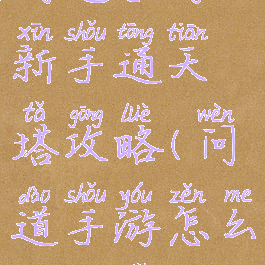 xīn shǒu tōng tiān
新手通天
tǎ gōng lüè wèn
塔攻略(问
dào shǒu yóu zěn me
道手游怎么